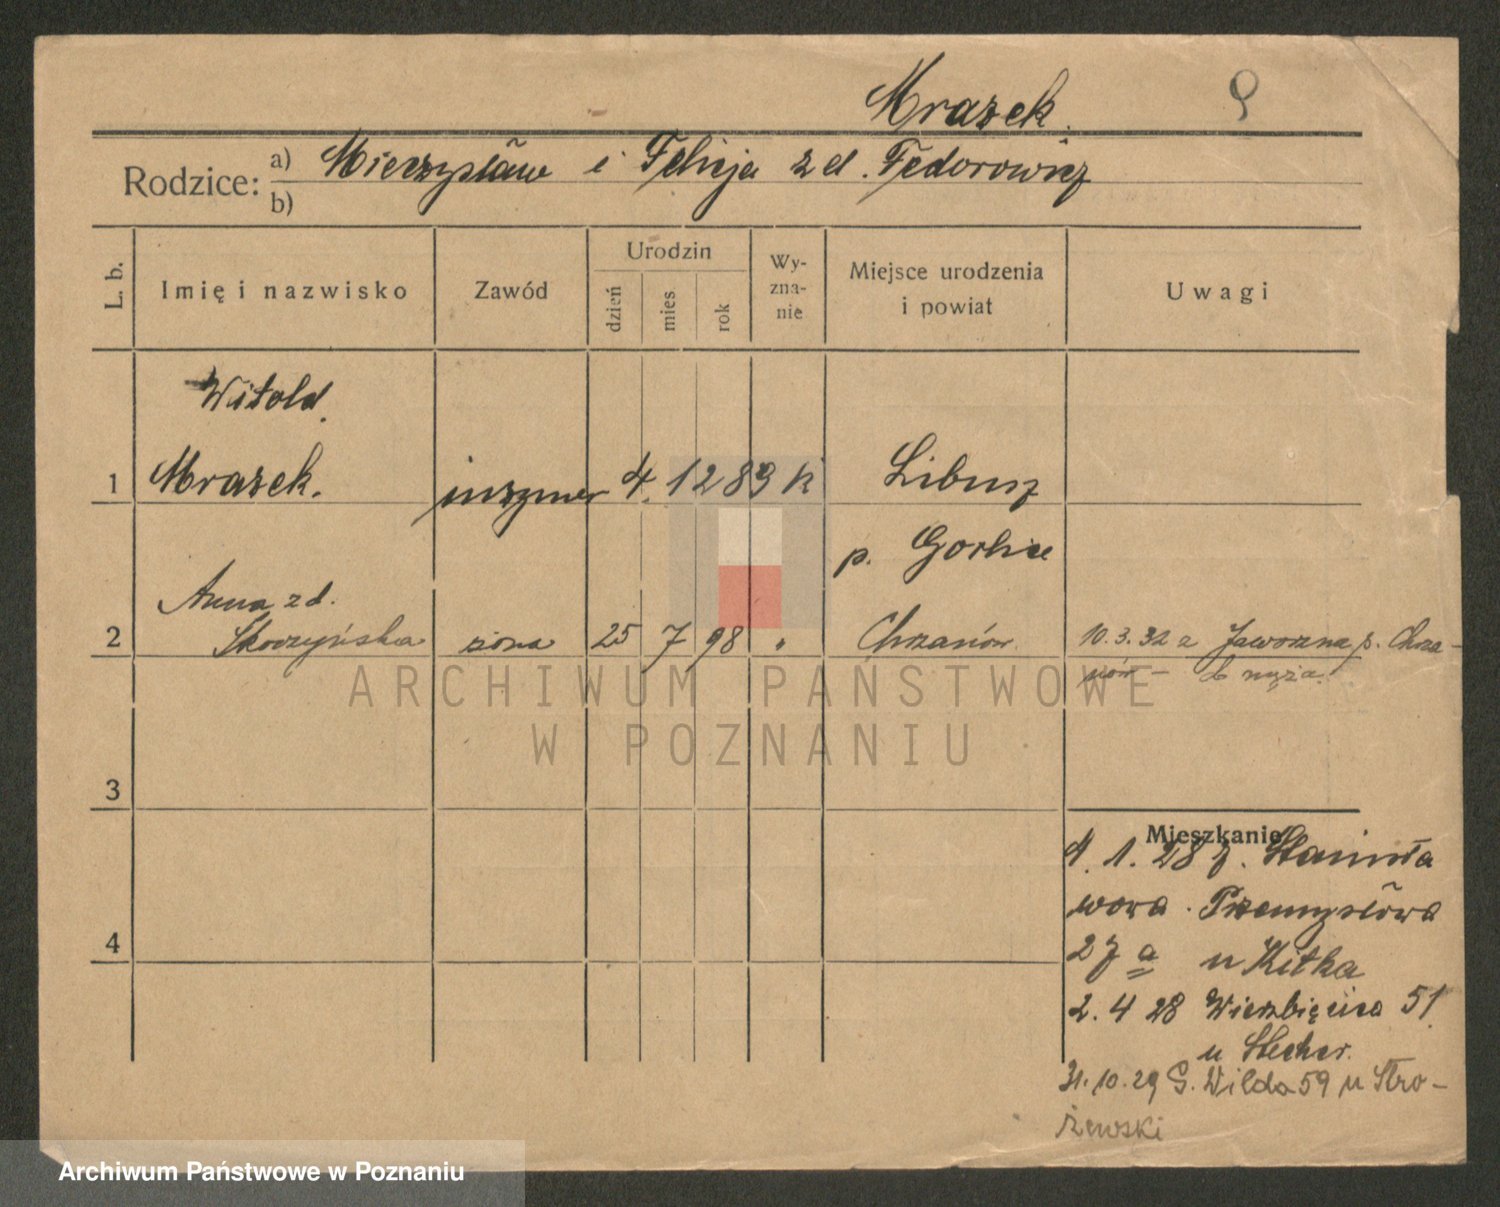 Mrazek.
Rodzice: a) Mieczysław i Felicja z d. Fedorowicz
b)
L. b. Imię i nazwisko Zawód Urodzin dzień mies rok Wy-zna-nie Miejsce urodzenia i powiat Uwagi
Witold
1 Mrazek. inżynier 4. 12 89 k Libusz
p. Gorlice
Anna z d.
2 Skoczyńska żona 25 7 98 " Chrzanów. 10.3.32 z Jaworzna p. Chrza-
nów – do męża.
ARCHIWUM PAŃSTWOWE
W POZNANIU
3
Mieszkanie
4. 1. 28 z. Stanisła
wowa. Przemysłowa
4
27 a u Kitka
2. 4 28 Wierzbięcice 51
u Stecher.
31.10.29 G. Wilda 59 u Stro-
żewski
Archiwum Państwowe w Poznaniu